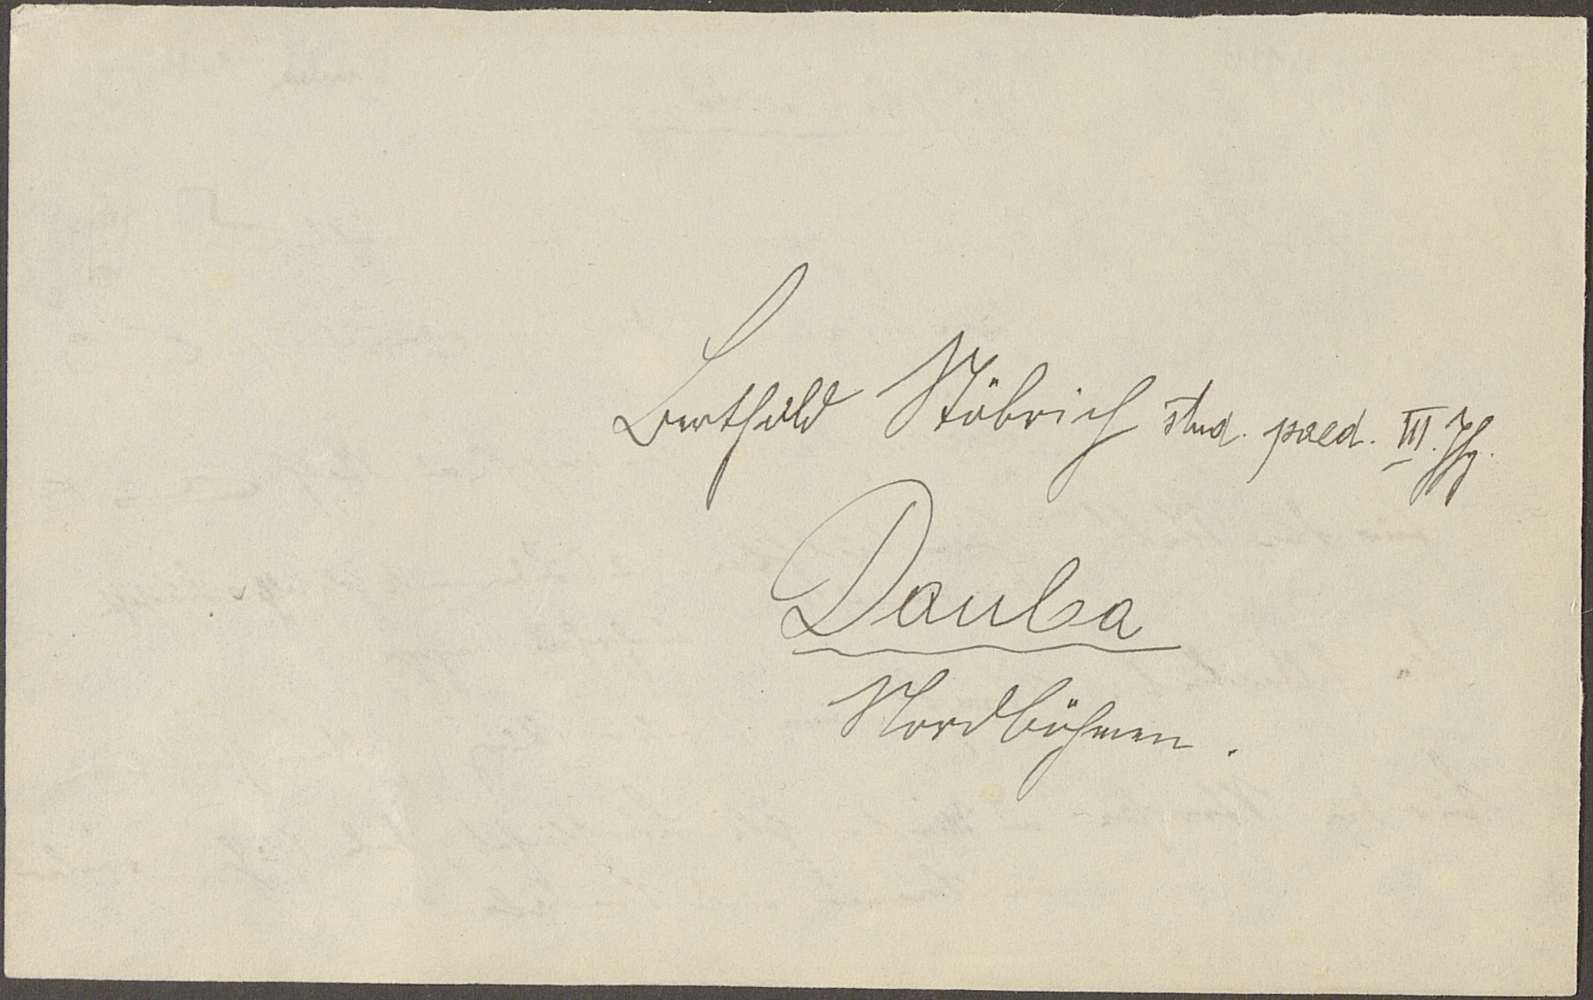 Berthold Stöbrich stud. paed. III. Jhg.
Dauba
Nordböhmen.